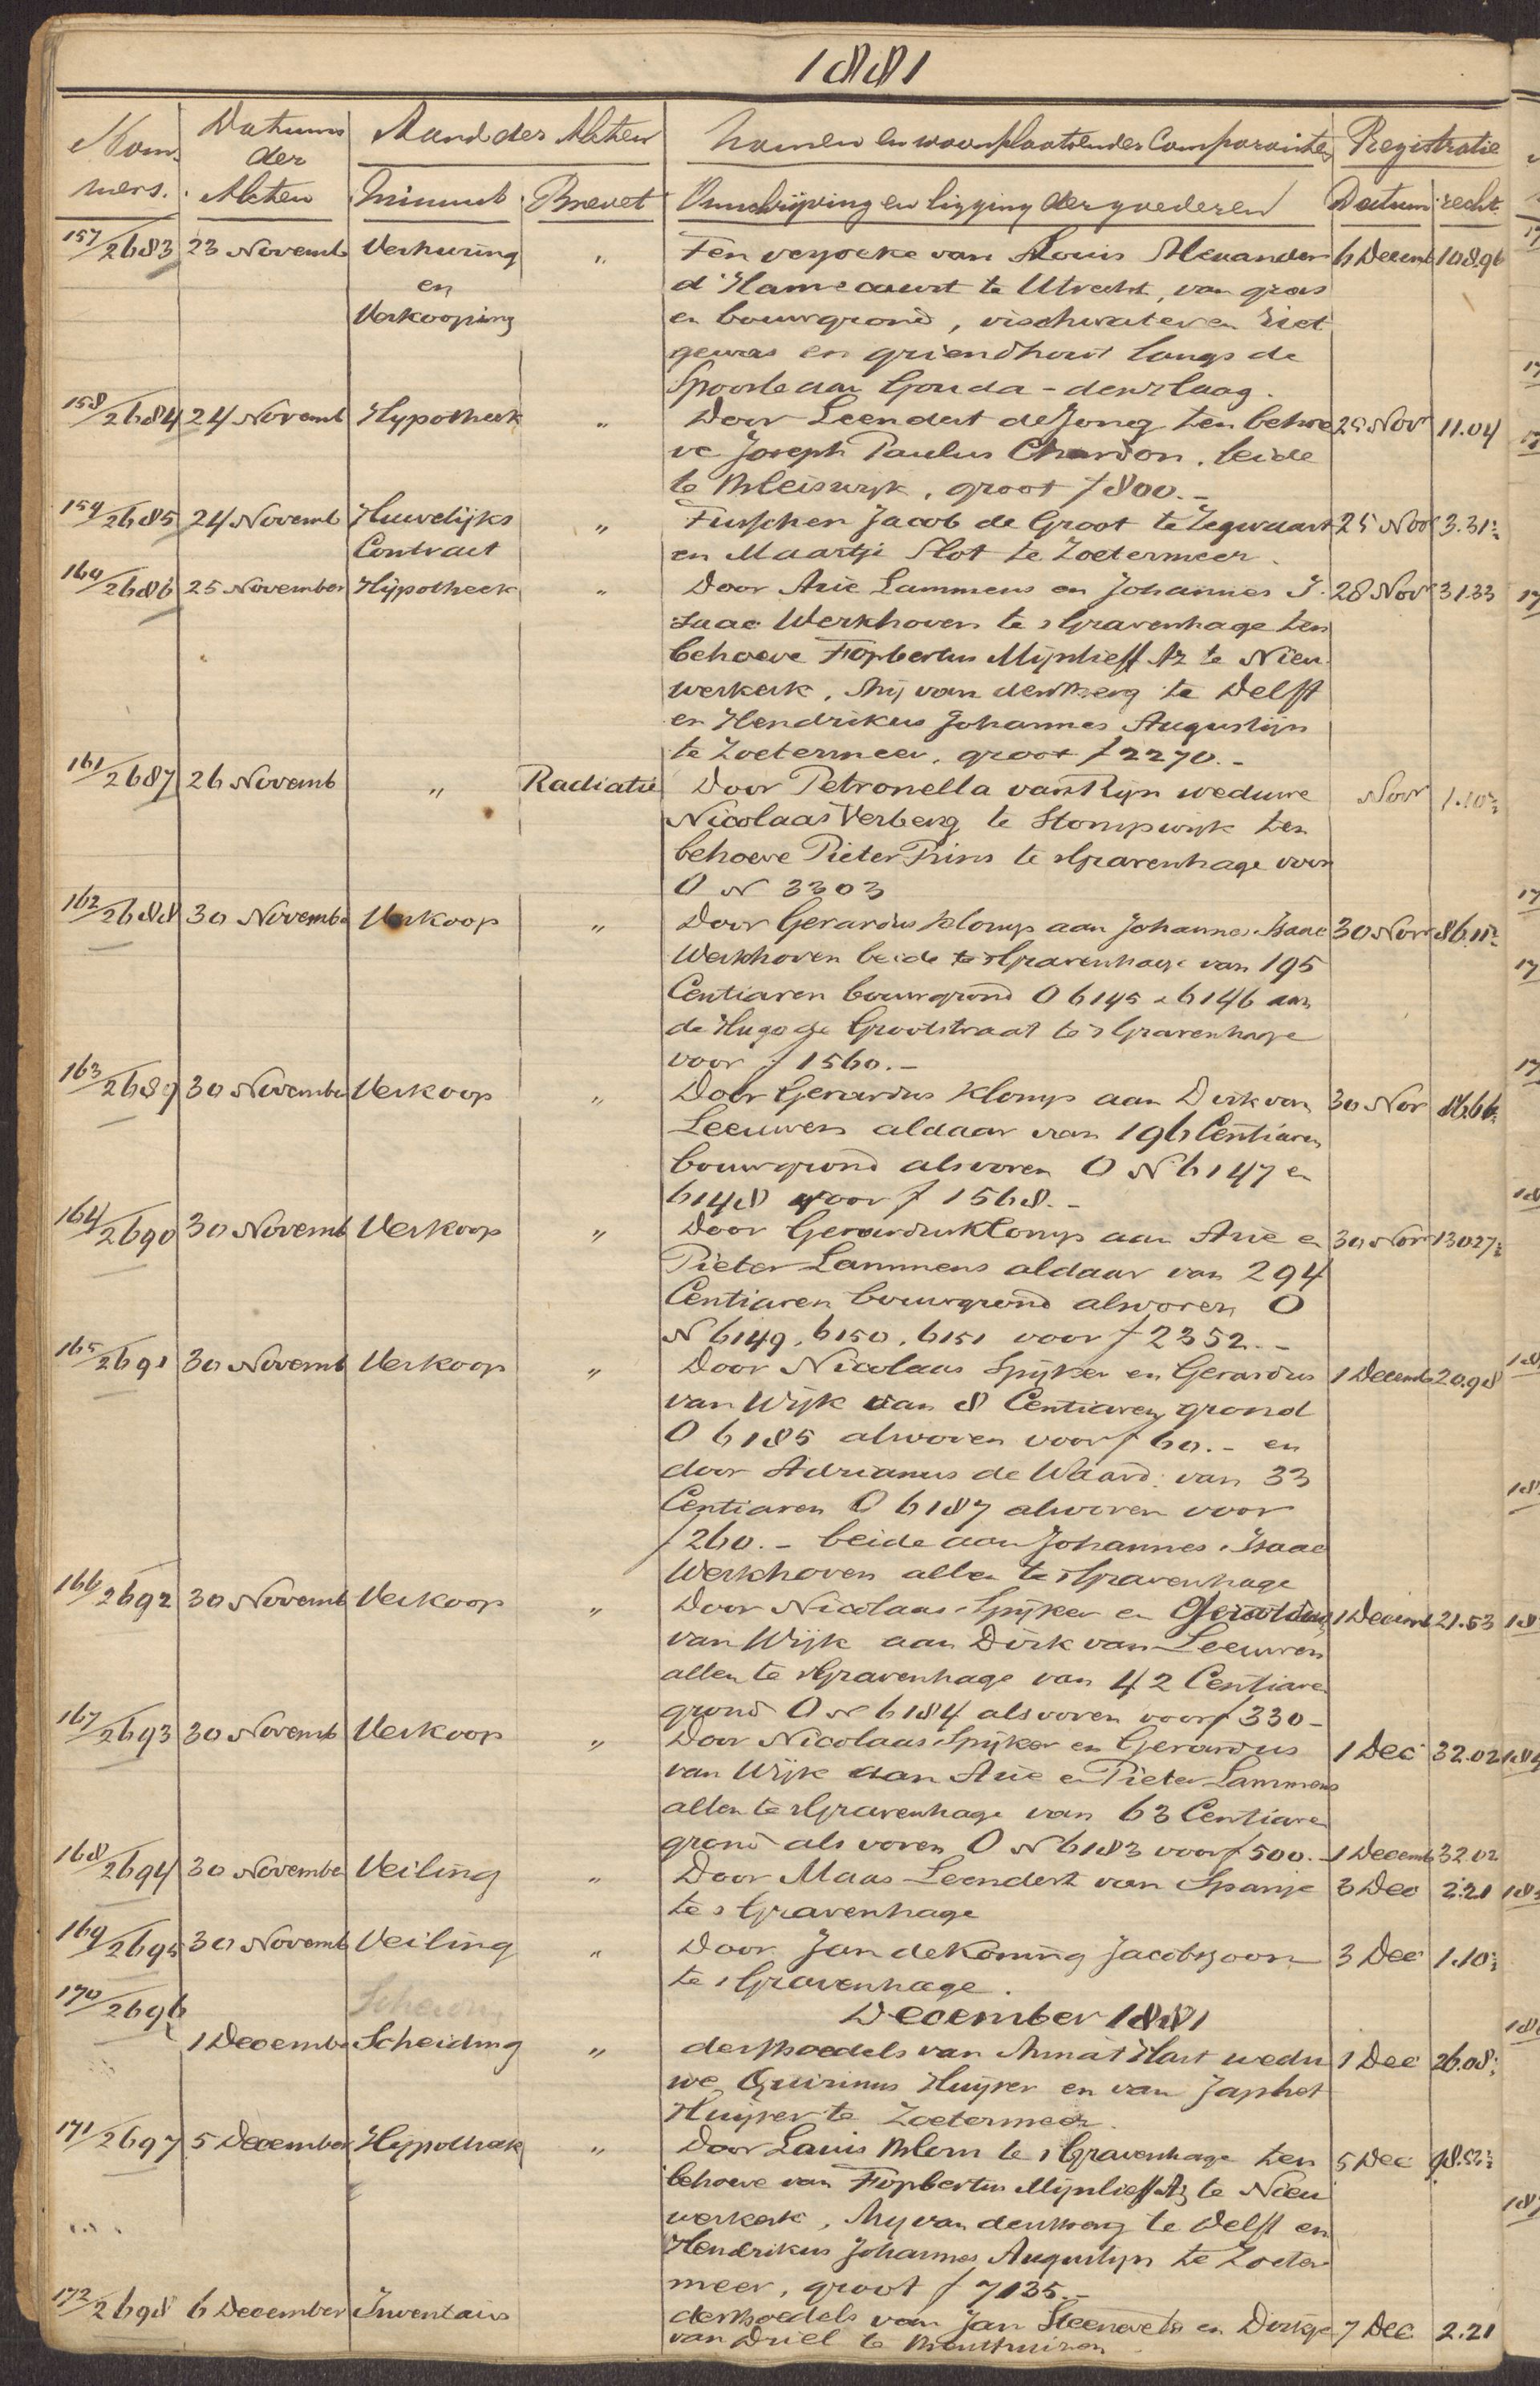 1881
Nom- Datums Aard der Akten Namen en woonplaatsen der Comparanten Registratie
der
mers. Akten Minuut Brevet Omschrijving en ligging der goederen Datum recht
157/2683 23 Novemb Verhuring " Ten verzoeke van Louis Alexander 6 Decemb 108.96
en d'Hamecourt te Utrecht, van gras
Verkooping en bouwgrond, vischwater en riet
gewas en griendhout langs de
Spoorbaan Gouda - den Haag.
158/2684 24 Novemb Hypotheek " Door Leendert de Jong ten behoe 25 Nov 11.04
ve Joseph Paulus Chardon, beide
te Bleiswijk, groot f 800.-
159/2685 24 Novemb Huwelijks " Tusschen Jacob de Groot te Zegwaart 25 Nov 3.31½
Contract en Maartje Slot te Zoetermeer.
160/2686 25 November Hypotheek " Door Arie Lammens en Johannes I- 28 Nov 31.33
saac Werkhoven te sGravenhage ten
behoeve Fopbertus Mijnlieff Az te Nieu
werkerk, Arij van den Berg te Delft
en Hendrikus Johannes Augustijn
te Zoetermeer, groot f 2270.-
161/2687 26 Novemb " Radiatie Door Petronella van Rijn weduwe Nov 1.10½
Nicolaas Verberg te Stompwijk ten
behoeve Pieter Prins te sGravenhage voor
O N 3303
162/2688 30 Novembe Verkoop " Door Gerardus Klomp aan Johannes Isaac 30 Nov 86.11½
Werkhoven beide te sGravenhage van 195
Centiaren bouwgrond O 6145 & 6146 aan
de Hugo de Grootstraat te sGravenhage
voor f 1560.-
163/2689 30 November Verkoop " Door Gerardus Klomp aan Dirk van 30 Nov 86.66½
Leeuwen aldaar van 196 Centiaren
bouwgrond alsvoren O N 6147 en
6148 voor f 1568.-
164/2690 30 Novemb Verkoop " Door Gerardus Klomp aan Arie en 30 Nov 130.27½
Pieter Lammens aldaar van 294
Centiaren bouwgrond alsvoren O
N 6149, 6150, 6151 voor f 2352.-
165/2691 30 Novemb Verkoop " Door Nicolaas Spijker en Gerardus 1 Decemb 20.98
van Wijk van 8 Centiaren grond
O 6185 alsvoren voor f 60.- en
door Adrianus de Waard van 33
Centiaren O 6187 alsvoren voor
f 260.- beide aan Johannes Isaac
Werkhoven allen te sGravenhage
166/2692 30 Novemb Verkoop " Door Nicolaas Spijker en Gerardus 1 Decemb 21.53
van Wijk aan Dirk van Leeuwen
allen te sGravenhage van 42 Centiare
grond O N 6184 alsvoren voor f 330-
167/2693 30 Novemb Verkoop " Door Nicolaas Spijker en Gerardus 1 Dec 32.02
van Wijk aan Arie en Pieter Lammens
allen te sGravenhage van 63 Centiare
grond als voren O N 6183 voor f 500.- 1 Decemb 32.02
168/2694 30 November Veiling " Door Maas Leendert van Spanje 3 Dec 2.21
te sGravenhage
169/2695 30 Novemb Veiling " Door Jan de Koning Jacobszoon 3 Dec 1.10½
te sGravenhage.
170/2696 December 1881
1 Decembe Scheiding " des boedels van Anna 't Hart wedu 1 Dec 26.08½
we Quirinus Huijser en van Japhet
Huijser te Zoetermeer.
171/2697 5 December Hypotheek " Door Louis Blom te sGravenhage ten 5 Dec 98.52½
behoeve van Fopbertus Mijnlieff Az te Nieu
werkerk, Arij van den Berg te Delft en
Hendrikus Johannes Augustijn te Zoeter
meer, groot f 7135.-
172/2698 6 December Inventaris des boedels van Jan Steenevelt en Dirkje 7 Dec 2.21
van Driel te Benthuizen